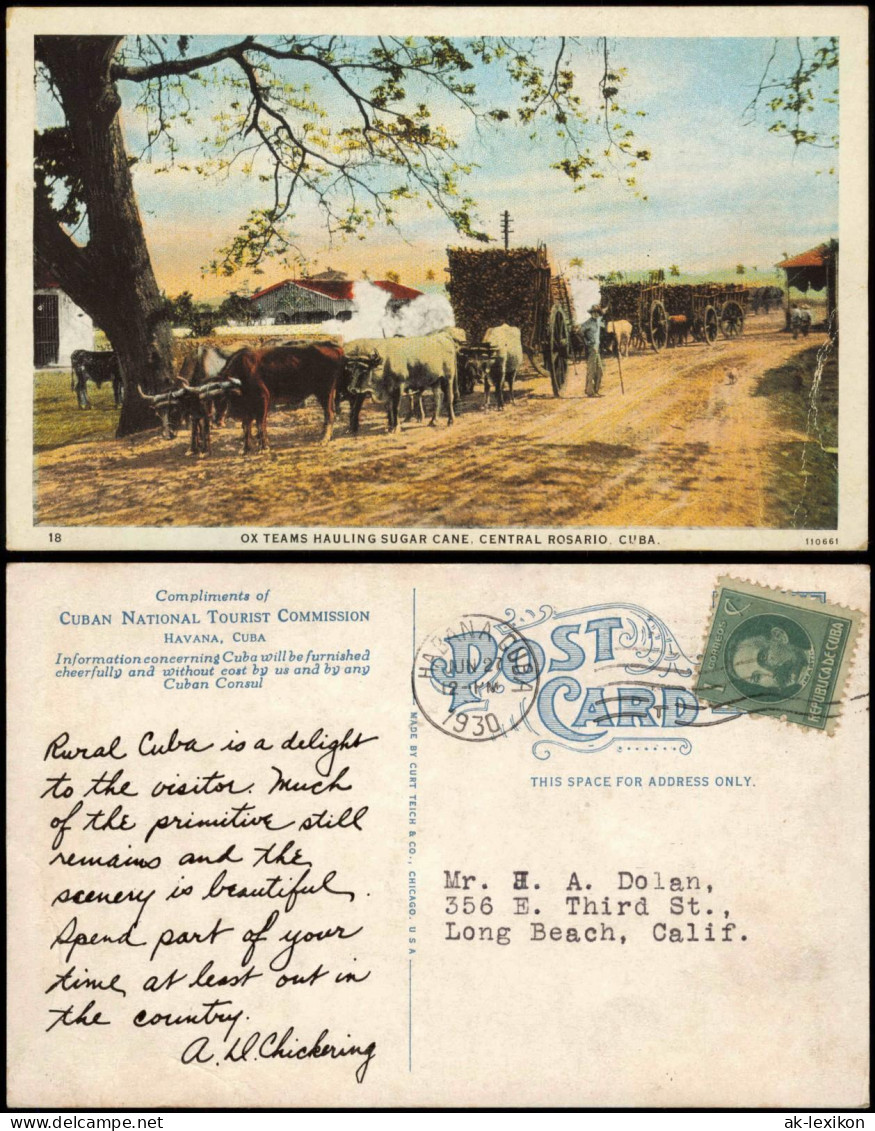 18
OX TEAMS HAULING SUGAR CANE, CENTRAL ROSARIO, CUBA.
110661
Compliments of
CUBAN NATIONAL TOURIST COMMISSION
HAVANA, CUBA
Information concerning Cuba will be furnished
cheerfully and without cost by us and by any
Cuban Consul
Rural Cuba is a delight
to the visitor. Much
of the primitive still
remains and the
scenery is beautiful.
Spend part of your
time at least out in
the country.
A. D. Chickering
MADE BY CURT TEICH & CO., CHICAGO, U.S.A.
HABANA CUBA
JUN 27
12 - PM
1930
POST
CARD
THIS SPACE FOR ADDRESS ONLY.
CORREOS
REPUBLICA DE CUBA
Mr. H. A. Dolan,
356 E. Third St.,
Long Beach, Calif.
ak-lexikon